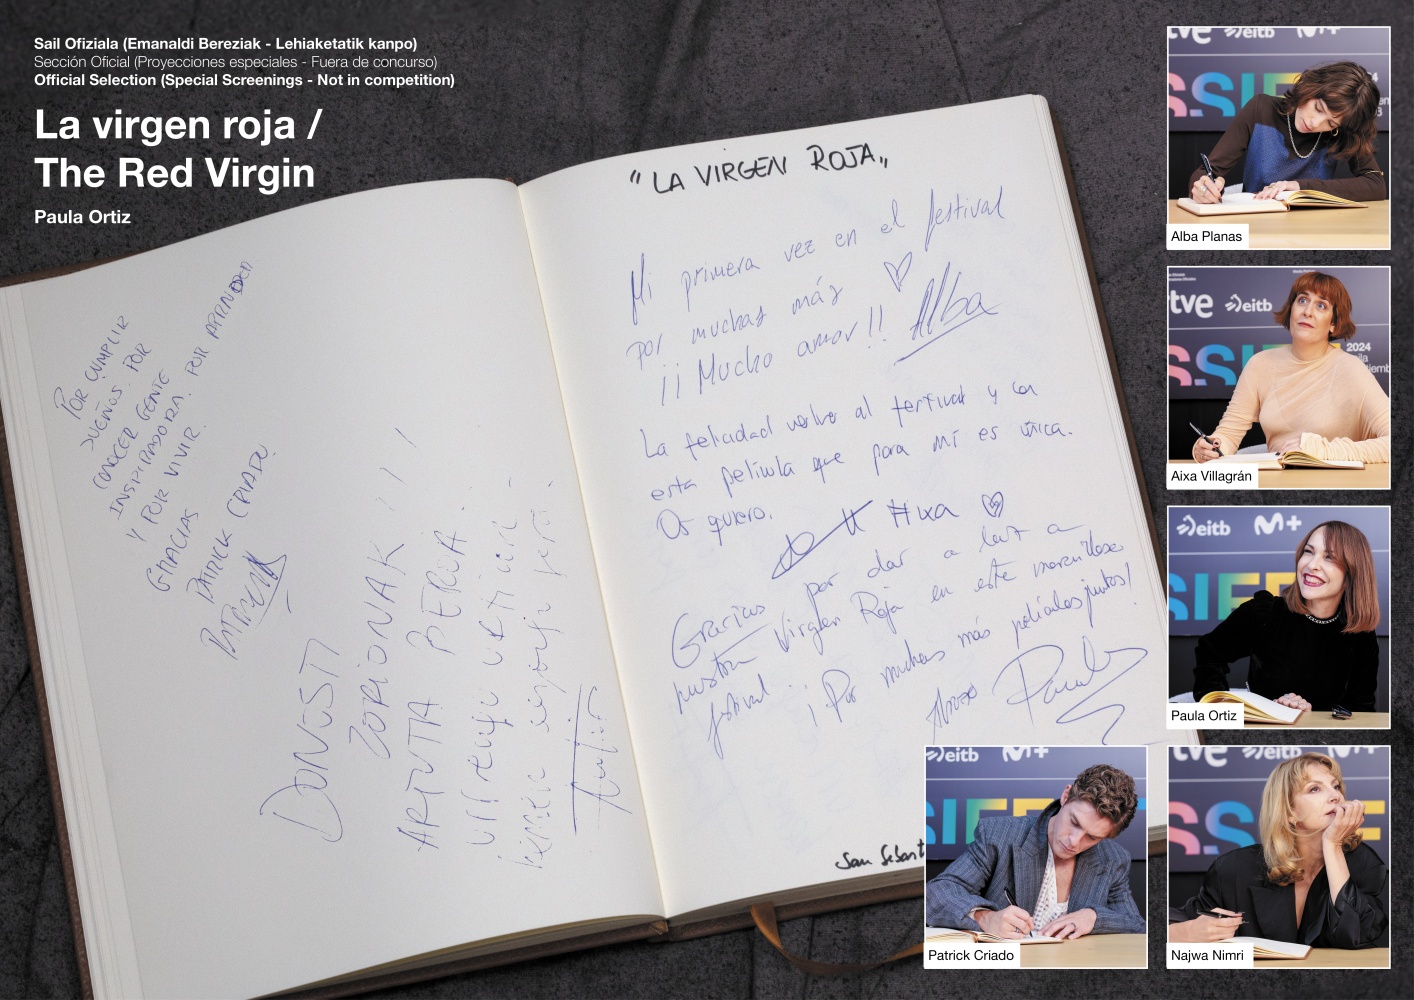 Sail Ofiziala (Emanaldi Bereziak - Lehiaketatik kanpo)
Sección Oficial (Proyecciones especiales - Fuera de concurso)
Official Selection (Special Screenings - Not in competition)
La virgen roja /
The Red Virgin
Paula Ortiz
POR CUMPLIR
SUEÑOS. POR
CONOCER GENTE
INSPIRADORA. POR APRENDER
Y POR VIVIR.
GRACIAS
PATRICK CRIADO.
PATRICK
DONOSTI
ZORIONAK
ARTUTA BEROA.
"LA VIRGEN ROJA"
Mi primera vez en el festival
por muchas más
¡¡Mucho amor!! Alba
La felicidad volver al festival y con
esta película que para mí es única.
Os quiero.
Aixa
Gracias por dar a luz a
nuestra Virgen Roja en este maravilloso
festival ¡Por muchas más películas juntos!
Paula
San Sebast
rtve eitb
SSIF
2024
Alba Planas
rtve eitb
SSIF
2024
Aixa Villagrán
eitb M+
SIFF
Paula Ortiz
eitb M+
SIFF
Patrick Criado
rtve eitb M+
SS
Najwa Nimri